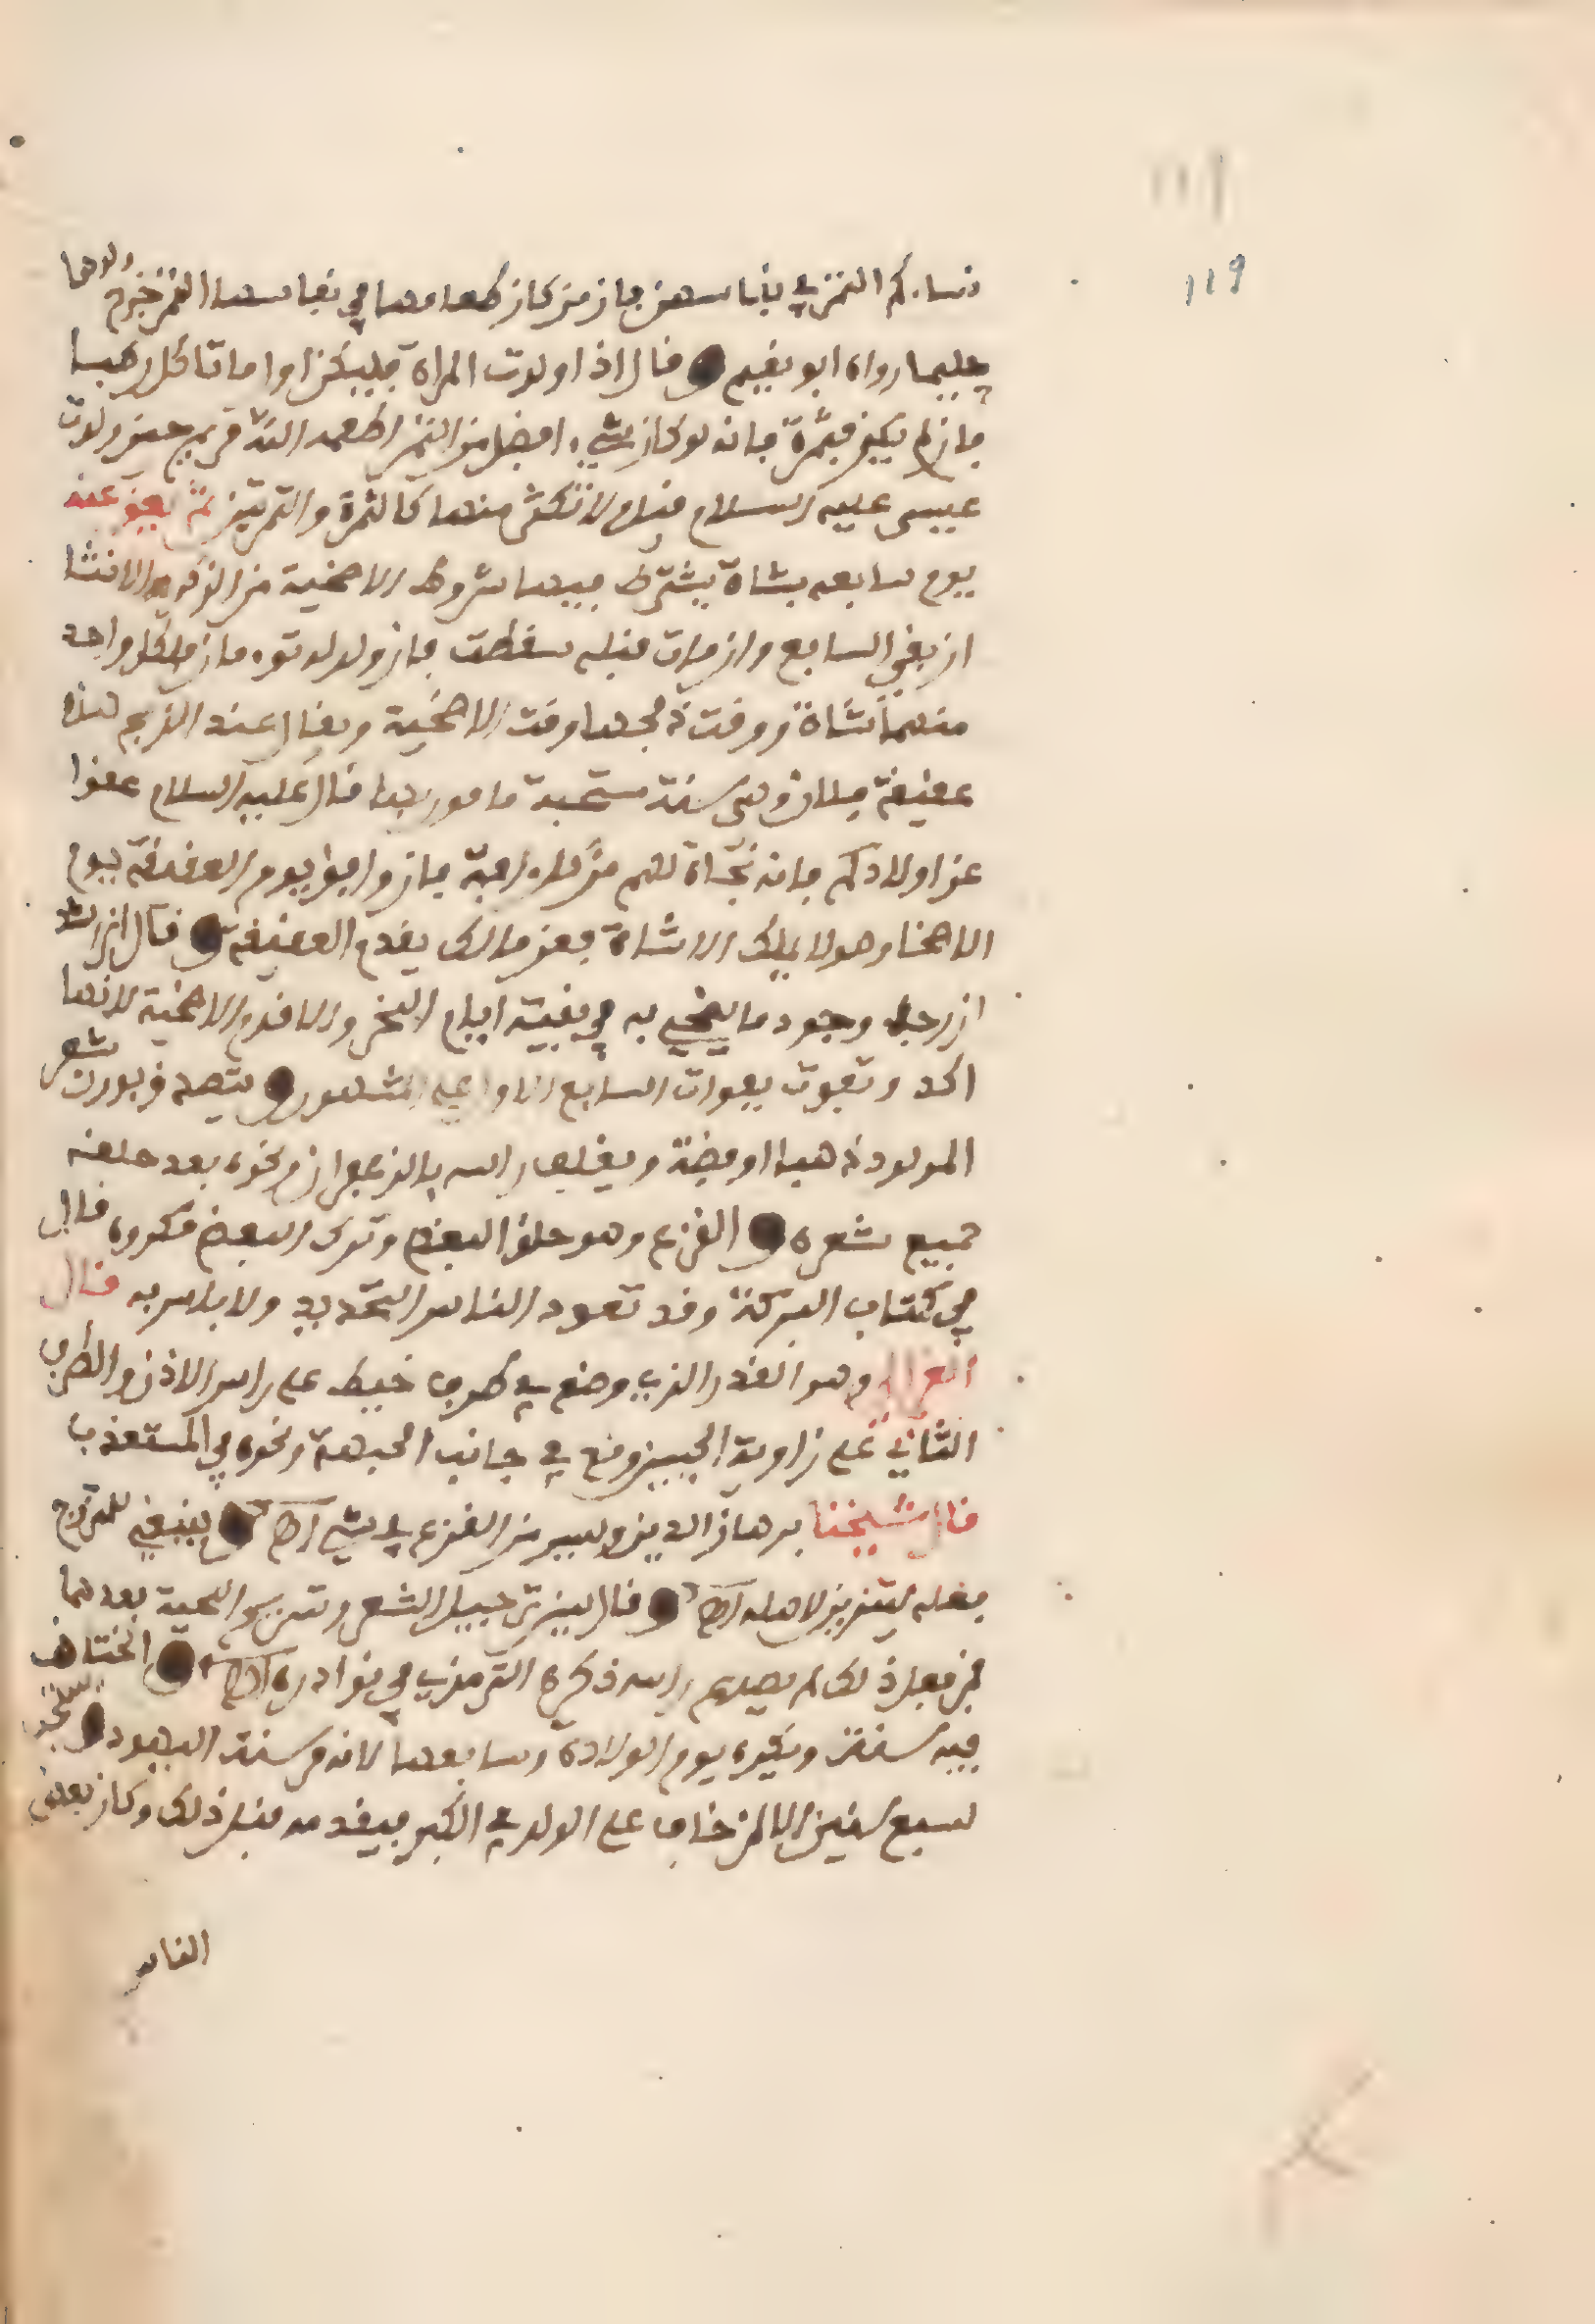 119
نساءكم التمر في نفاسهن فإن من كان طعامها في نفاسها التمر خرج ولدها
حليما رواه ابو نعيم و قال اذا ولدت المراة فليكن اول ما تاكل رطبا
فإن لم يكن فتمرة فانه لو كان شيء افضل من التمر اطعمه الله مريم حين ولدت
عيسى عليه السلام قيل ولا تكثر منها كالثمرة والتمرتين ثم يعق عنه
يوم سابعه بشاة يشترط فيها شروط الاضحية من الذكور والانثا
ان بقي السابع وان مات قبله سقطت فإن ولد له توءمان فلكل واحد
منهما شاة ووقت ذبحها وقت الاضحية ويقال عند الذبح هذه
عقيقة فلان وهي سنة مستحبة مامور بها قال عليه السلام عقوا
عن اولادكم فانه نجاة لهم من كل فإن وافق يوم العقيقة يوم
الاضحا وهو لا يملك الا شاة فعن مالك يقدم العقيقة و قال ابن رشد
ان رجا وجود ما يضحي به في بقية ايام النحر والا قدم الاضحية لانها
اكد وتفوت بفوات السابع الاول على المشهور و يتصدق بوزن شعر
المولود ذهبا او فضة ويغلف راسه بالزعفران ونحوه بعد حلقه
جميع شعره و القزع وهو حلق البعض وترك البعض مكروه قال
في كتاب البركة وقد تعود الناس التحذيف ولا باس به قال
الغزالي وهو القدر الذي وضع في طرف خيط على راس الاذن والطرف
الثاني على زاوية الجبين وقع في جانب الجبهة ونحوه في المستعذب
قال شيخنا برهان الدين وليس من القزع في شيء اه و ينبغي للمتزوج
فعله ليتزين لاهله اه و قال ابن حبيب الشعر وتسريح اللحية بعدهما
فمن فعل ذلك لم يصدع راسه ذكره الترمذي في نوادره اه و الختان
فيه سنة ويكره يوم الولادة وسابعها لانه من سنة اليهود و يستحب
لسبع سنين الا لمن خاف على الولد في الكبر فيقدمه قبل ذلك وكان بعض
الناس